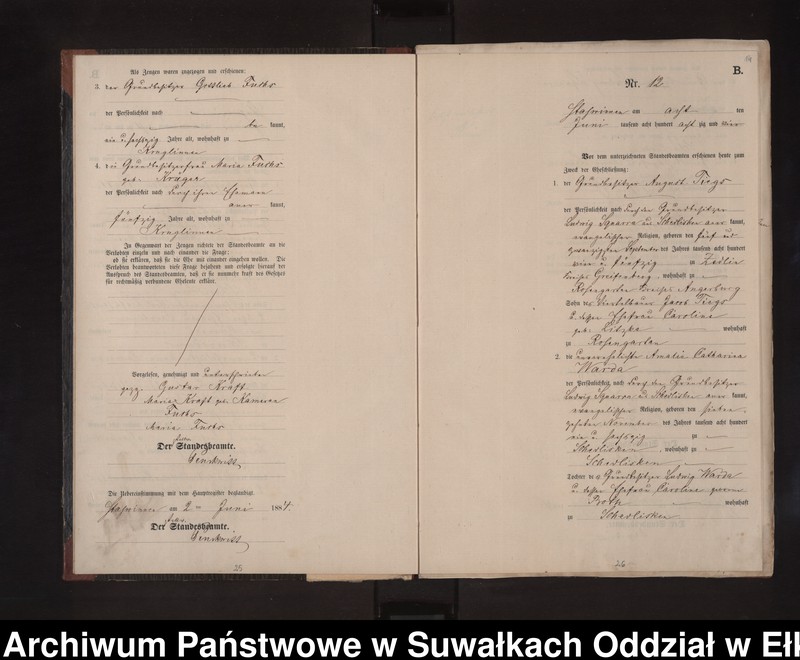 Als Zeugen waren zugezogen und erschienen:
3. der Grundbesitzer Gottlieb Fuchs
der Persönlichkeit nach
kannt,
Jahre alt, wohnhaft zu
Kruglinnen
4. die Grundbesitzerfrau Maria Fuchs
geb. Krüger
der Persönlichkeit nach durch ihren Ehemann
aner kannt,
fünfzig Jahre alt, wohnhaft zu
Kruglinnen
In Gegenwart der Zeugen richtete der Standesbeamte an die
Verlobten einzeln und nach einander die Frage:
ob sie erklären, daß sie die Ehe mit einander eingehen wollen. Die
Verlobten beantworteten diese Frage bejahend und erfolgte hierauf der
Ausspruch des Standesbeamten, daß er sie nunmehr kraft des Gesetzes
für rechtmäßig verbundene Eheleute erkläre.
Vorgelesen, genehmigt und unterschrieben
gez. Gustav Kraft
Maria Kraft geb.
Fuchs
Maria Fuchs
Der Standesbeamte.
Die Uebereinstimmung mit dem Hauptregister beglaubigt.
am 2 ten Juni 1884.
Der Standesbeamte.
25
B.
Nr. 12
am acht ten
Juni tausend acht hundert acht zig und vier
Vor dem unterzeichneten Standesbeamten erschienen heute zum
Zweck der Eheschließung:
1. der Grundbesitzer August Tiegs
der Persönlichkeit nach durch den Grundbesitzer
Ludwig zu Schedlisken aner kannt,
evangelischer Religion, geboren den fünf und
zwanzigsten September des Jahres tausend acht hundert
vier u. fünfzig zu Zedlin
Kreises Greifenberg, wohnhaft zu
Rosengarten Kreises Angerburg
Sohn des Jacob Tiegs
u. dessen Ehefrau Caroline
geb. Litzke wohnhaft
zu Rosengarten
2. die unverehelichte Amalie Catharina
Warda
der Persönlichkeit nach durch den Grundbesitzer
Ludwig zu Schedlisken aner kannt,
evangelischer Religion, geboren den sieben
zehnten November des Jahres tausend acht hundert
ein u. sechszig zu
Schedlisken, wohnhaft zu
Schedlisken
Tochter des Grundbesitzer Ludwig Warda
u. dessen Ehefrau Caroline geborene
wohnhaft
zu Schedlisken
26
Archiwum Państwowe w Suwałkach Oddział w Ełk